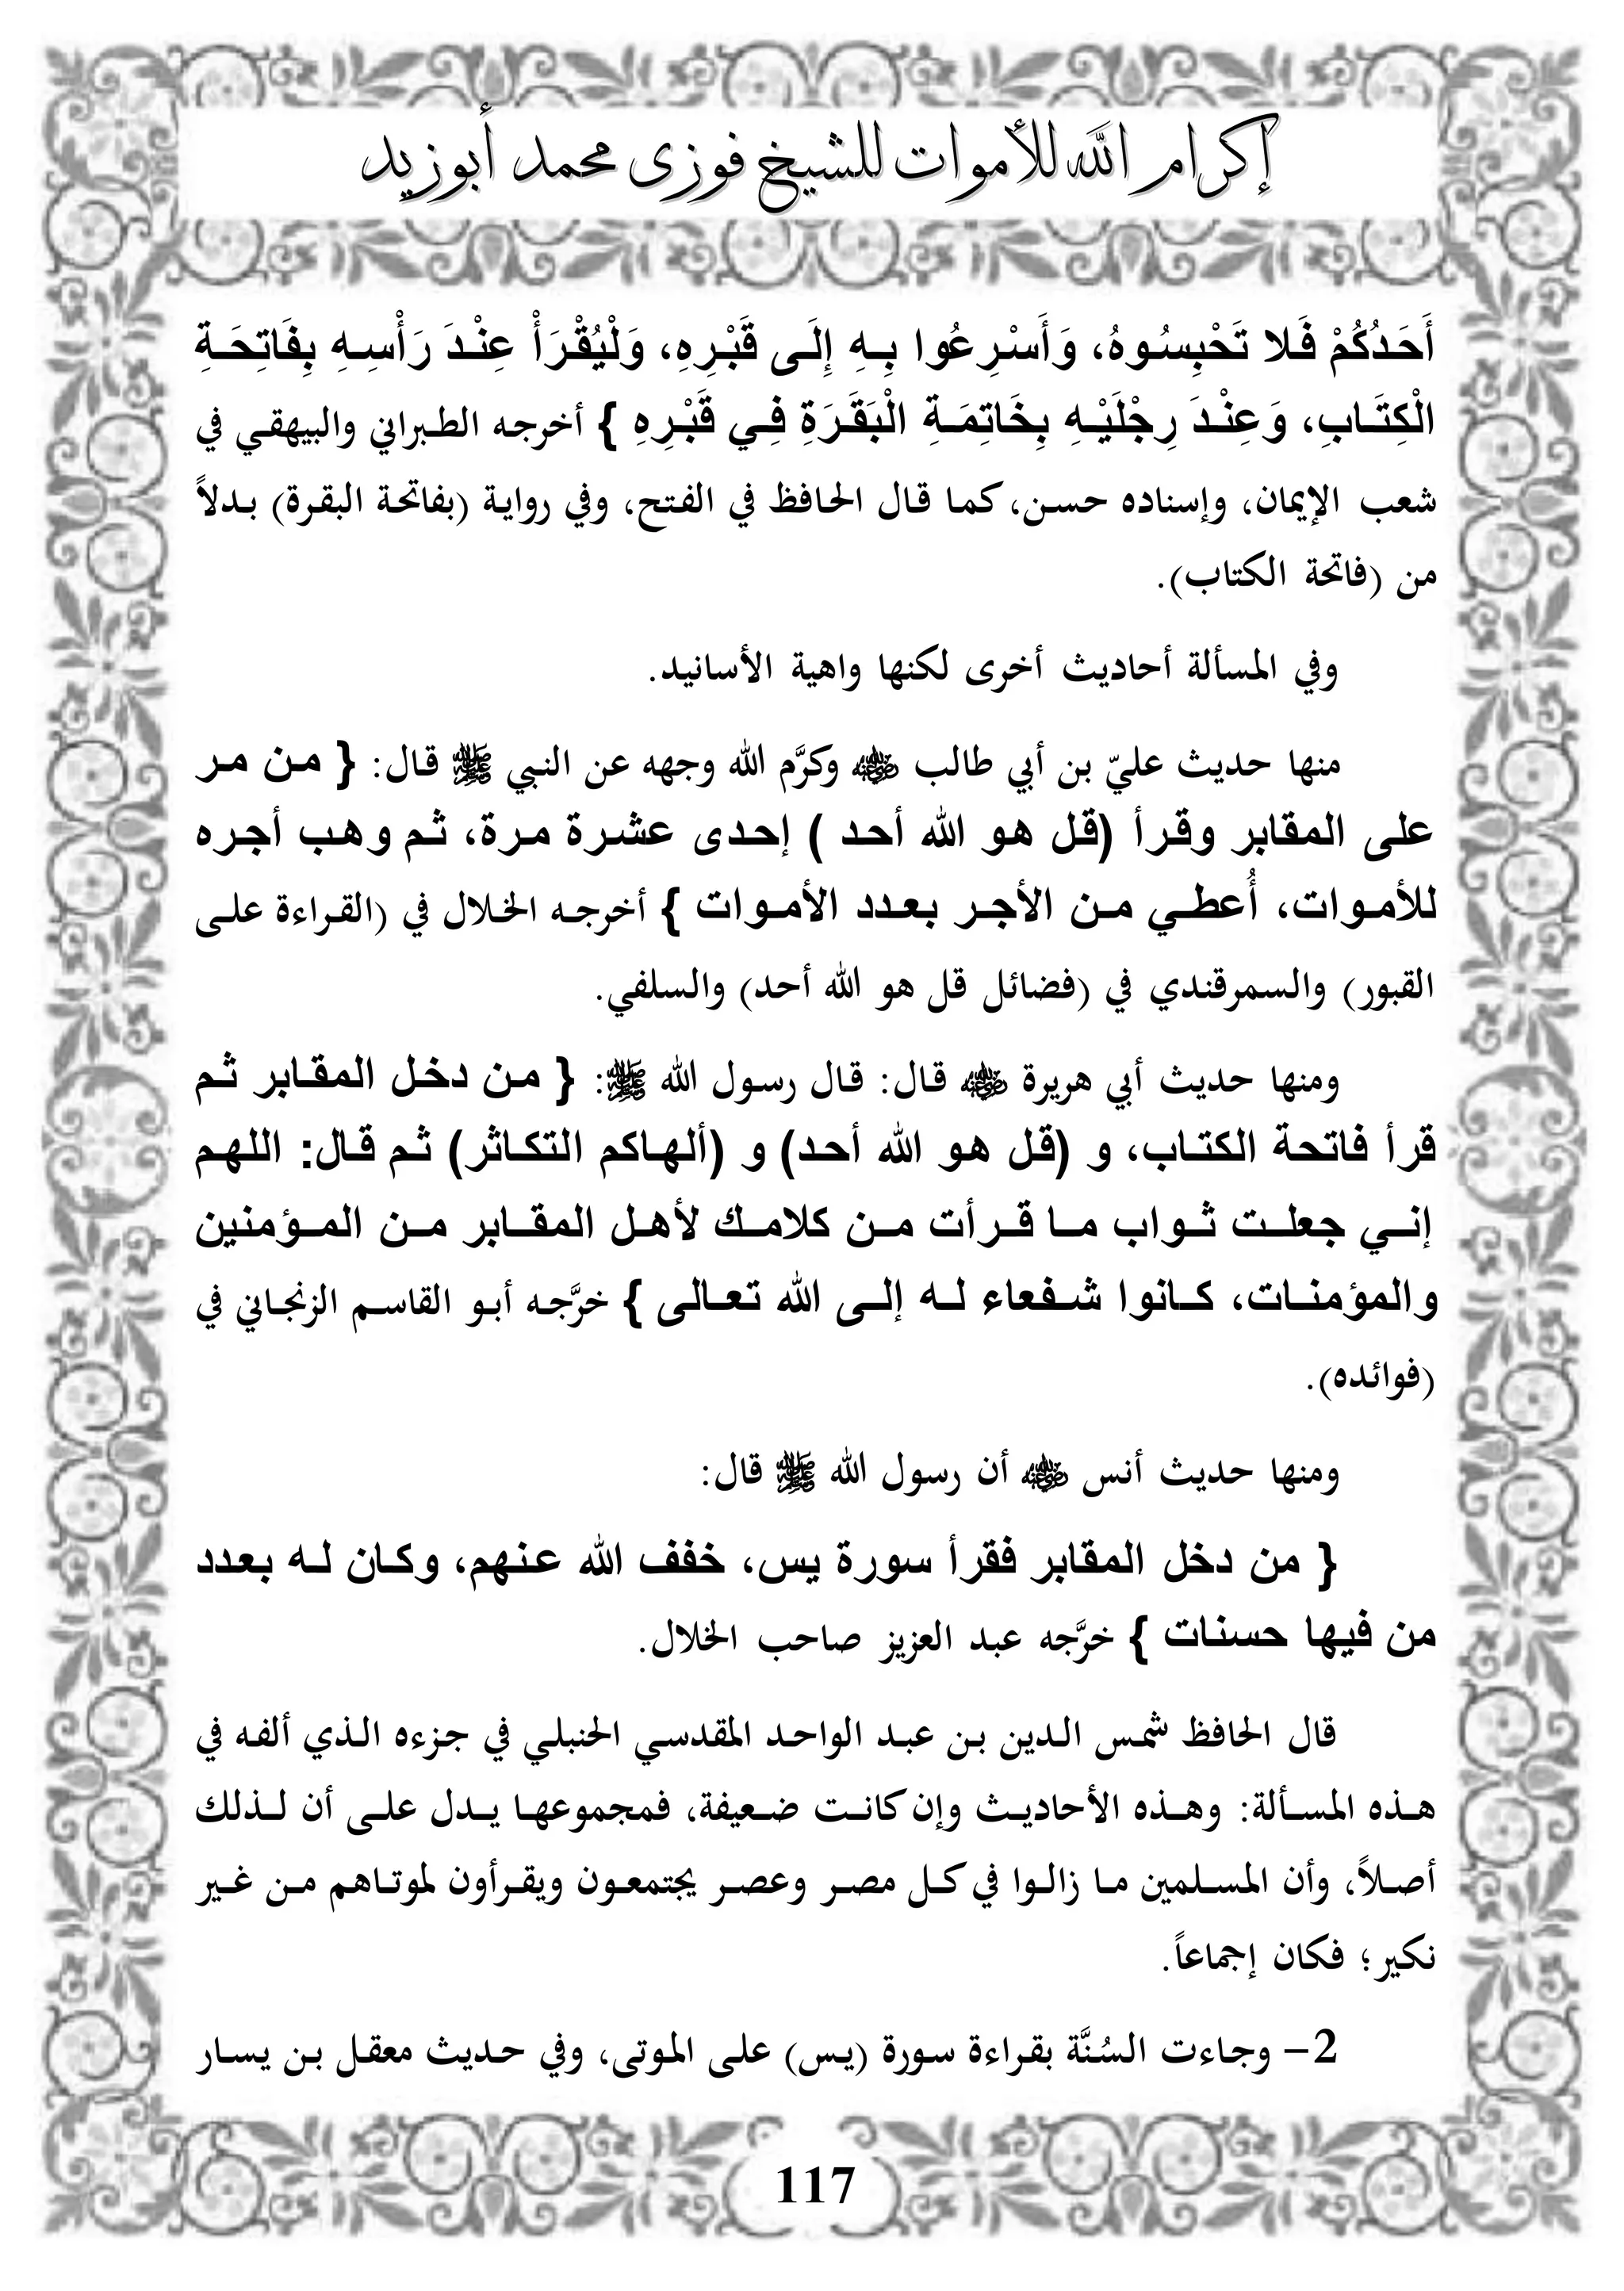 إكرام الله للأموات للشيخ فوزى محمد أبوزيد
أَحَدُكُمْ فَلا تَحْبِسُوهُ، وَأَسْرِعُوا بِهِ إِلَى قَبْرِهِ، وَلْيُقْرَأْ عِنْدَ رَأْسِهِ بِفَاتِحَةِ
الْكِتَابِ، وَعِنْدَ رِجْلَيْهِ بِخَاتِمَةِ الْبَقَرَةِ فِي قَبْرِهِ } أخرجه الطبراني والبيهقي في
شعب الإيمان، وإسناده حسن، كما قال الحافظ في الفتح، وفي رواية (بفاتحة البقرة) بدلاً
من (فاتحة الكتاب).
وفي المسألة أحاديث أخرى لكنها واهية الأسانيد.
منها حديث عليّ بن أبي طالب ﵁ وكرَّم الله وجهه عن النبي ﷺ قال: { من مر
على المقابر وقرأ (قل هو الله أحد ) إحدى عشرة مرة، ثم وهب أجره
للأموات، أُعطي من الأجر بعدد الأموات } أخرجه الخلال في (القراءة على
القبور) والسمرقندي في (فضائل قل هو الله أحد) والسلفي.
ومنها حديث أبي هريرة ﵁ قال: قال رسول الله ﷺ: { من دخل المقابر ثم
قرأ فاتحة الكتاب، و (قل هو الله أحد) و (ألهاكم التكاثر) ثم قال: اللهم
إني جعلت ثواب ما قرأت من كلامك لأهل المقابر من المؤمنين
والمؤمنات، كانوا شفعاء له إلى الله تعالى } خرَّجه أبو القاسم الزنجاني في
(فوائده).
ومنها حديث أنس ﵁ أن رسول الله ﷺ قال:
{ من دخل المقابر فقرأ سورة يس، خفف الله عنهم، وكان له بعدد
من فيها حسنات } خرَّجه عبد العزيز صاحب الخلال.
قال الحافظ شمس الدين بن عبد الواحد المقدسي الحنبلي في جزءه الذي ألفه في
هذه المسألة: وهذه الأحاديث وإن كانت ضعيفة، فمجموعها يدل على أن لذلك
أصلاً، وأن المسلمين ما زالوا في كل مصر وعصر يجتمعون ويقرأون لموتاهم من غير
نكير؛ فكان إجماعاً.
2- وجاءت السُنَّة بقراءة سورة (يس) على الموتى، وفي حديث معقل بن يسار
117